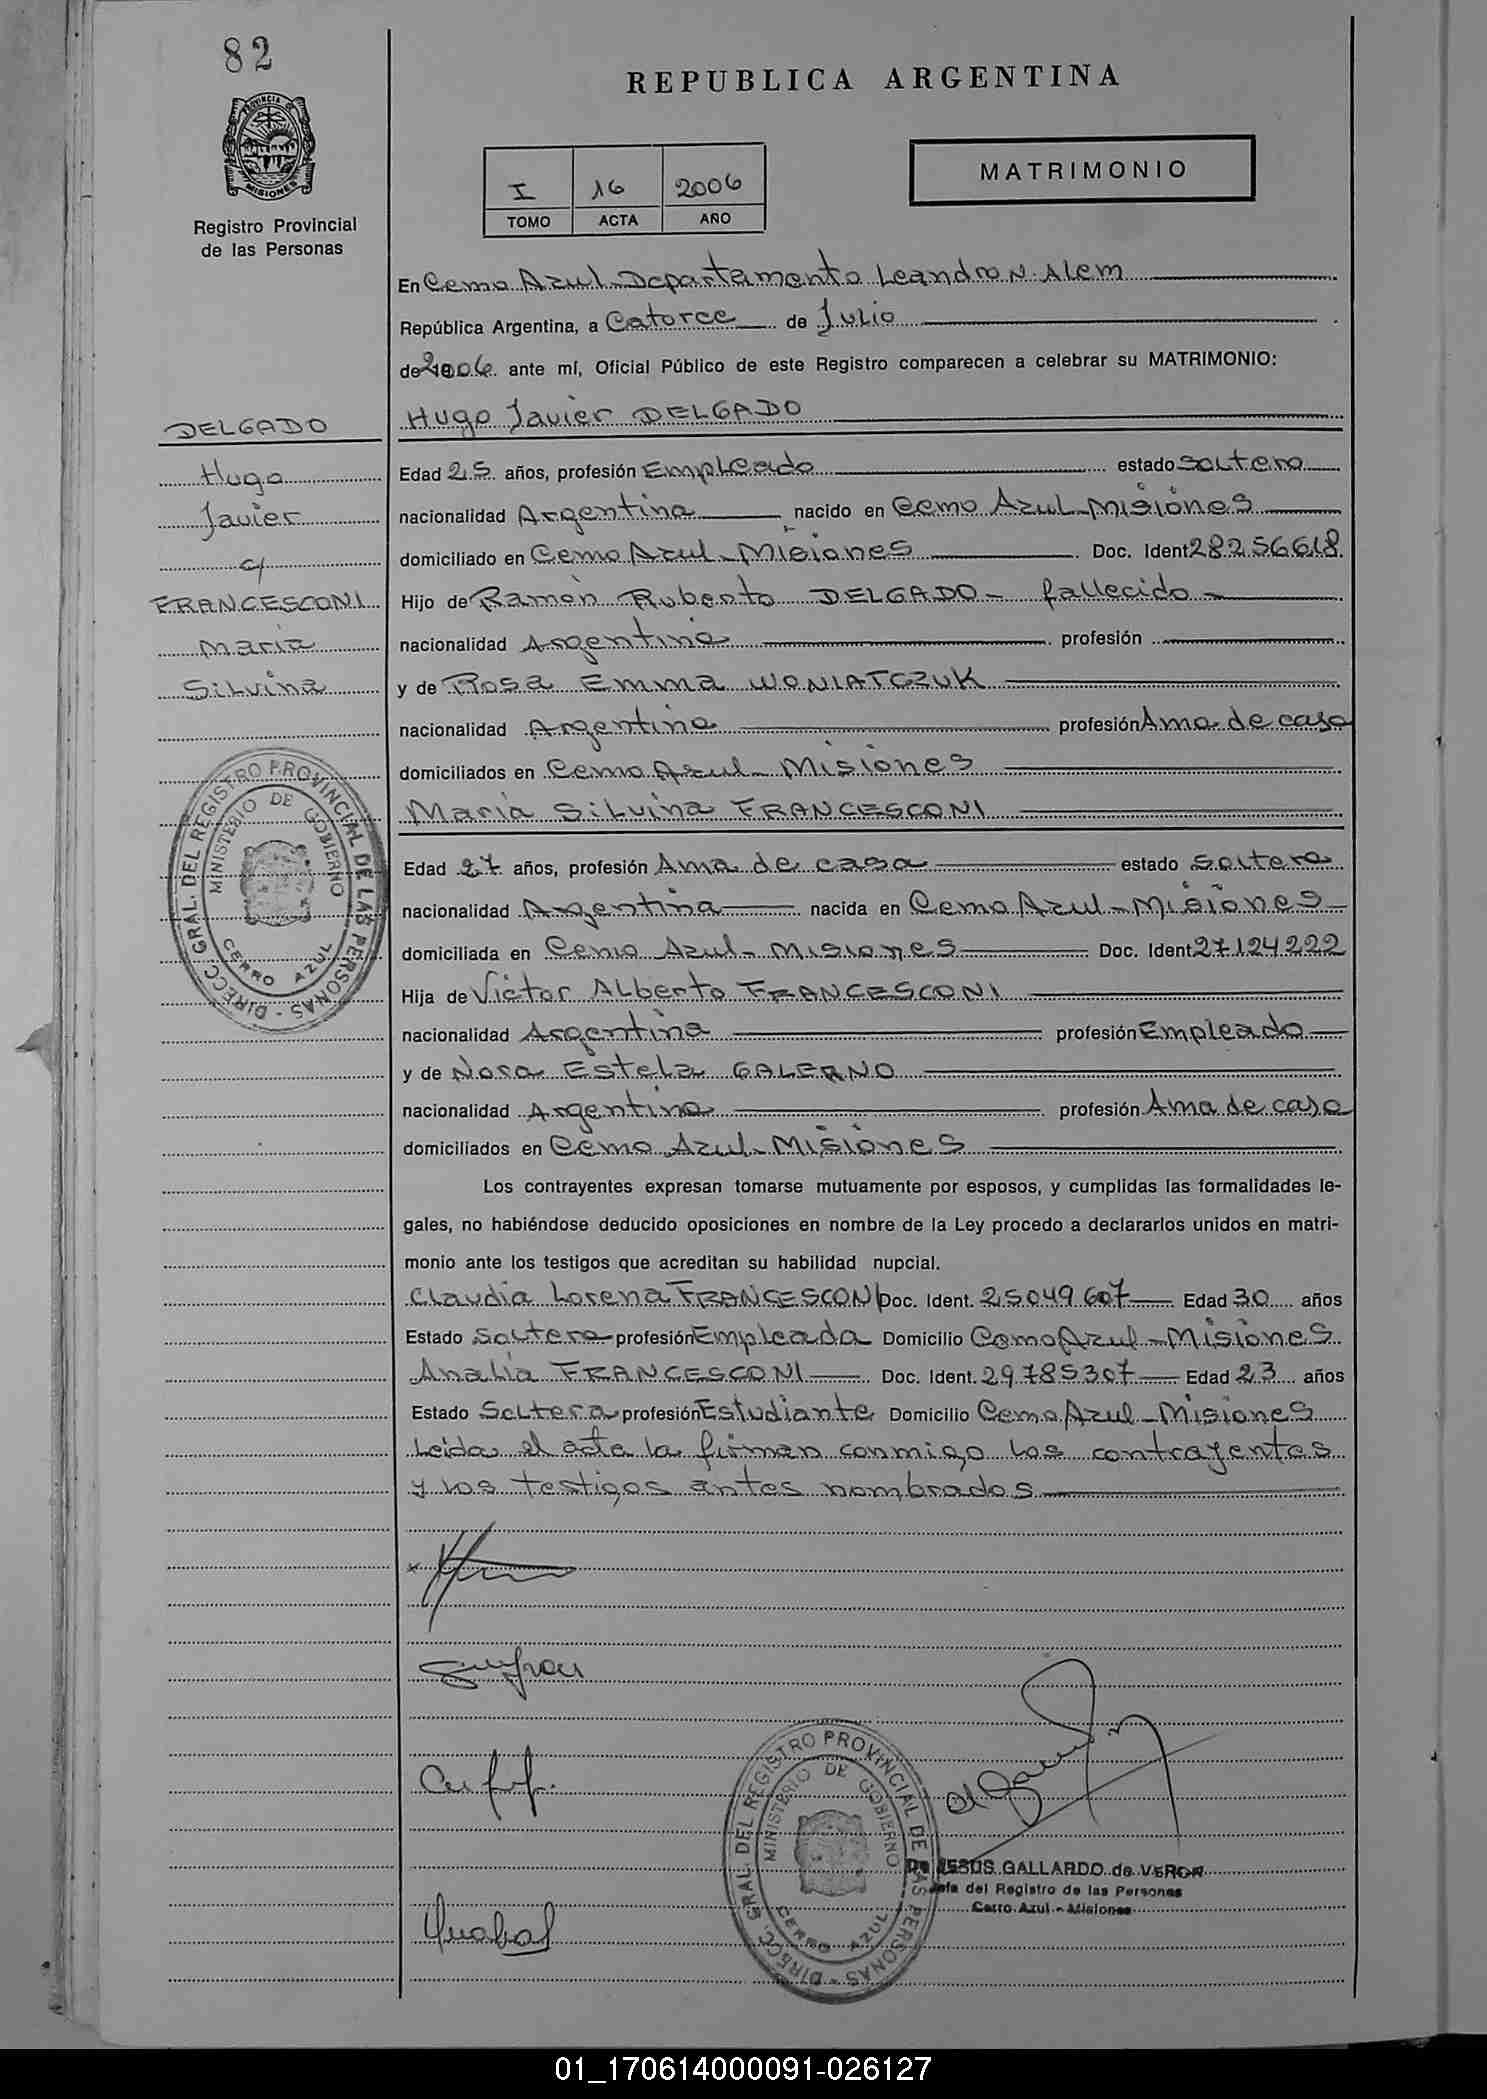 82
REPUBLICA ARGENTINA
PROVINCIA DE MISIONES
Registro Provincial
de las Personas
I 16 2006
TOMO ACTA AÑO
MATRIMONIO
En Cerro Azul - Departamento Leandro N. Alem
República Argentina, a Catorce de Julio
de 2006 ante mí, Oficial Público de este Registro comparecen a celebrar su MATRIMONIO:
DELGADO
Hugo
Javier
c/
FRANCESCONI
Maria
Silvina
Hugo Javier DELGADO
Edad 25 años, profesión Empleado estado Soltero
nacionalidad Argentina nacido en Cerro Azul - Misiones
domiciliado en Cerro Azul - Misiones Doc. Ident 28256618
Hijo de Ramón Ruberto DELGADO - fallecido -
nacionalidad Argentina profesión
y de Rosa Emma WONIATCZUK
nacionalidad Argentina profesión Ama de casa
domiciliados en Cerro Azul - Misiones
Maria Silvina FRANCESCONI
Edad 27 años, profesión Ama de casa estado Soltera
nacionalidad Argentina nacida en Cerro Azul - Misiones
domiciliada en Cerro Azul - Misiones Doc. Ident 27124222
Hija de Victor Alberto FRANCESCONI
nacionalidad Argentina profesión Empleado
y de Nora Estela GALERNO
nacionalidad Argentina profesión Ama de casa
domiciliados en Cerro Azul - Misiones
Los contrayentes expresan tomarse mutuamente por esposos, y cumplidas las formalidades le-
gales, no habiéndose deducido oposiciones en nombre de la Ley procedo a declararlos unidos en matri-
monio ante los testigos que acreditan su habilidad nupcial.
Claudia Lorena FRANCESCONI Doc. Ident. 25049607 Edad 30 años
Estado Soltera profesión Empleada Domicilio Cerro Azul - Misiones
Analia FRANCESCONI Doc. Ident. 29785307 Edad 23 años
Estado Soltera profesión Estudiante Domicilio Cerro Azul - Misiones
Leida el acta la firman conmigo los contrayentes
y los testigos antes nombrados
DIRECC. GRAL. DEL REGISTRO PROVINCIAL DE LAS PERSONAS -
MINISTERIO DE GOBIERNO
CERRO AZUL
DIRECC. GRAL. DEL REGISTRO PROVINCIAL DE LAS PERSONAS -
MINISTERIO DE GOBIERNO
CERRO AZUL
JESUS GALLARDO de VERON
Jefa del Registro de las Personas
Cerro Azul - Misiones
01_170614000091-026127